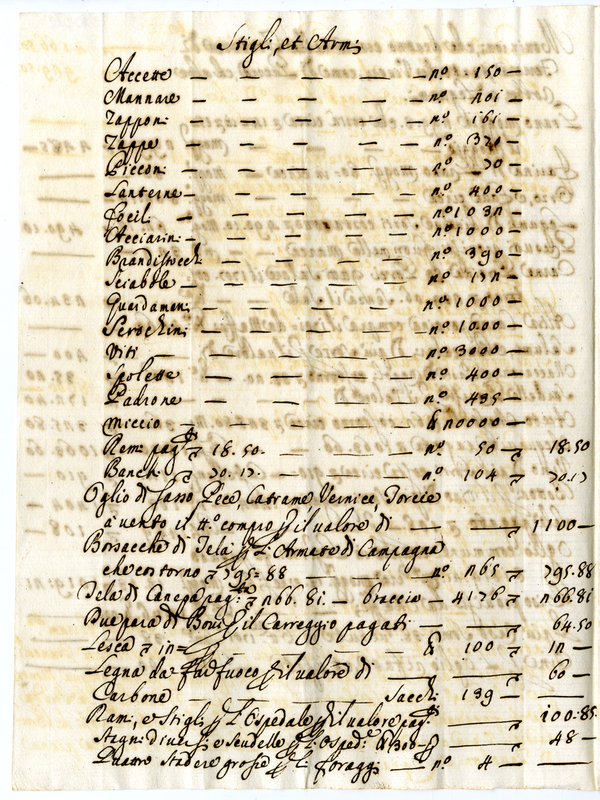 Stigli, et Armi
Accette — — — — n.º 150 —
Mannare — — — — n.º 201 —
Zapponi — — — — n.º 161 —
Zappe — — — — n.º
Picconi — — — — n.º 70 —
Lanterne — — — — n.º 400 —
Focili — — — — n.º 1032 —
Acciarini — — — — n.º 1000 —
Brandistocchi — — — n.º 390 —
Sciabole — — — — n.º 172 —
Guardamani — — — n.º 1000 —
Serochini — — — — n.º 1000 —
Viti — — — — n.º 3000 —
Spolette — — — — n.º 400 —
Padrone — — — — n.º 435 —
Miccio — — — — 20000 —
Remi pag.ti 18.50. — — n.º 50 — 18.50
Banchi 70.17. — — n.º 104 — 70.17
Oglio di Sasso Pece, Catrame Vernice, Torcie
à vento il tt.º compro p il valore di — — 1100 —
Borsacche di Tela p l'Armate di Campagna
che costorno 795=88 — — n.º 265 — 795.88
Tela di Canepa pag.ta 266.81 — braccia — 4176 — 266.81
Due para di Bovi p il Carreggio pagati — — 64.50
Lesca 12= — — 100 — 12 —
Legna da fuoco p il valore di — — 60 —
Carbone — — Sacchi 139 — —
Rami, e Stigli p l'Ospedale p il valore pag.ti — 100.85
Stagni diversi e scudelle p l'Osped.e 300 — 48 —
Quattro stadere grosse p li foraggi — n.º 4 — —